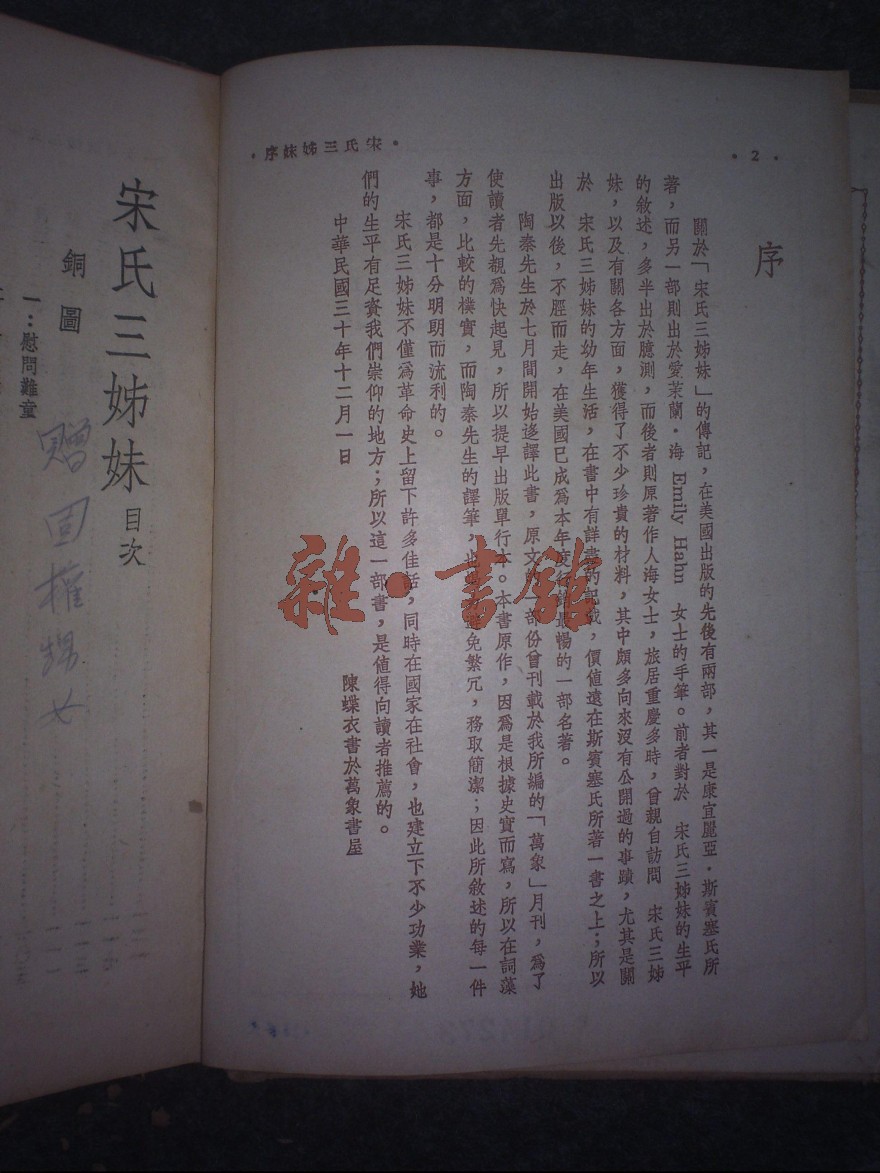 ·宋氏三姊妹序·
·2·
序
關於「宋氏三姊妹」的傳記，在美國出版的先後有兩部，其一是康宜麗亞·斯賓塞氏所
著，而另一部則出於愛茉蘭·海 Emily Hahn 女士的手筆。前者對於 宋氏三姊妹的生平
的敘述，多半出於臆測，而後者則原著作人海女士，旅居重慶多時，曾親自訪問 宋氏三姊
妹，以及有關各方面，獲得了不少珍貴的材料，其中頗多向來沒有公開過的事蹟，尤其是關
於 宋氏三姊妹的幼年生活，在書中有詳盡的記載，價値遠在斯賓塞氏所著一書之上；所以
出版以後，不脛而走，在美國已成爲本年度行銷最暢的一部名著。
陶秦先生於七月間開始迻譯此書，原文 部份曾刊載於我所編的「萬象」月刊，爲了
使讀者先覩爲快起見，所以提早出版單行本。本書原作，因爲是根據史實而寫，所以在詞藻
方面，比較的樸實，而陶秦先生的譯筆，也 免繁冗，務取簡潔；因此所敘述的每一件
事，都是十分明朗而流利的。
宋氏三姊妹不僅爲革命史上留下許多佳話，同時在國家在社會，也建立下不少功業，她
們的生平有足資我們崇仰的地方；所以這一部書，是値得向讀者推薦的。
中華民國三十年十二月一日
陳蝶衣書於萬象書屋
雜·書館
宋氏三姊妹 目次
銅圖
一：慰問難童
贈 固權 女